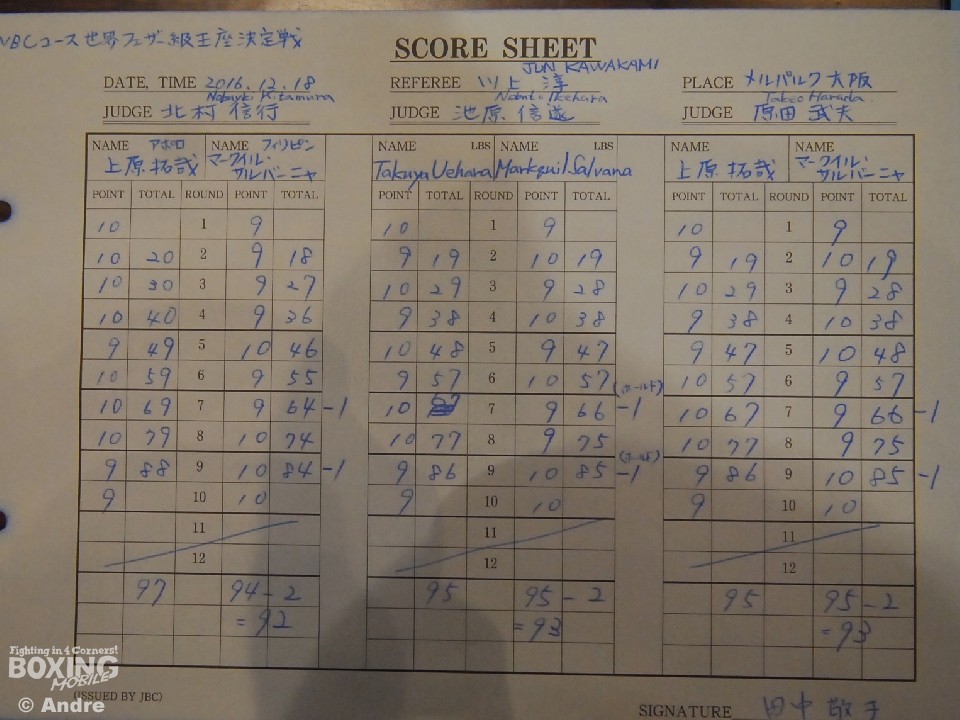 WBCユース世界フェザー級王座決定戦
SCORE SHEET
JUN KAWAKAMI
DATE, TIME 2016.12.18 REFEREE 川上 淳 PLACE メルパルク大阪
Nobuyuki Kitamura Nobuto Ikehara Takeo Harada
JUDGE 北村 信行 JUDGE 池原 信遂 JUDGE 原田 武夫
NAME アポロ NAME フィリピン NAME LBS NAME LBS NAME NAME
上原 拓哉 マークイル・サルバーニャ Takuya Uehara Markquil Salvana 上原 拓哉 マークイル・サルバーニャ
POINT TOTAL ROUND POINT TOTAL POINT TOTAL ROUND POINT TOTAL POINT TOTAL ROUND POINT TOTAL
10 1 9 10 1 9 10 1 9
10 20 2 9 18 9 19 2 10 19 9 19 2 10 19
10 30 3 9 27 10 29 3 9 28 10 29 3 9 28
10 40 4 9 36 9 38 4 10 38 9 38 4 10 38
9 49 5 10 46 10 48 5 9 47 9 47 5 10 48
10 59 6 9 55 9 57 6 10 57 10 57 6 9 57
(ホールド)
10 69 7 9 64 -1 10 67 7 9 66 -1 10 67 7 9 66 -1
10 79 8 10 74 10 77 8 9 75 10 77 8 9 75
(ホールド)
9 88 9 10 84 -1 9 86 9 10 85 -1 9 86 9 10 85 -1
9 10 10 9 10 10 9 10 10
11 11 11
12 12 12
97 94-2 95 95-2 95 95-2
=92 =93 =93
Fighting in 4 Corners!
BOXING
MOBILE
(ISSUED BY JBC)
© Andre
SIGNATURE 田中 敬子